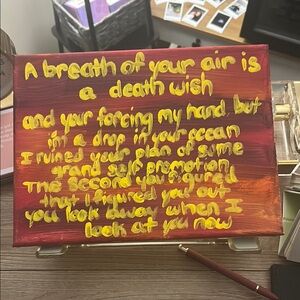 A breath of your air is
a death wish
and your forcing my hand but
im a drop in your ocean
I ruined your plan of some
grand self promotion
The second you figured
that I figured you out
you look away when I
look at you now